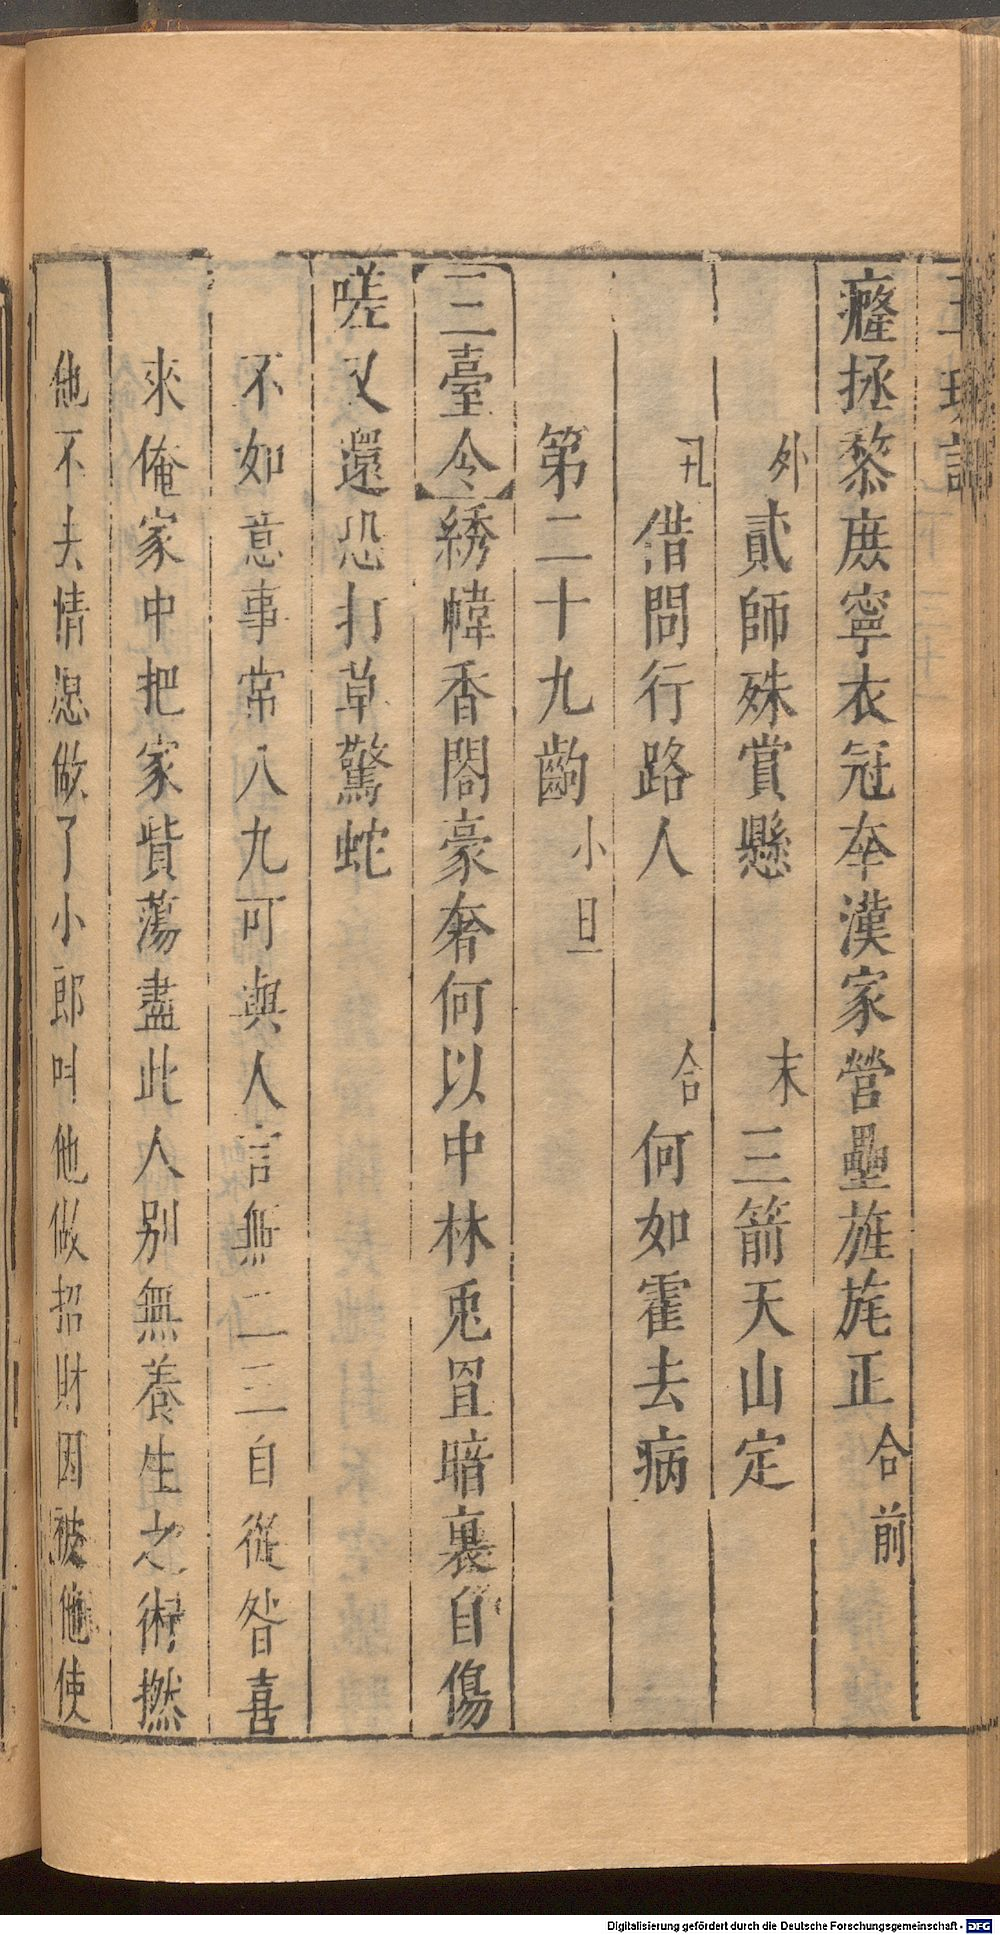 癃拯黎庶寧衣冠奉漢家營壘旌旄正合前
外貳師殊賞懸　末三箭天山定
丑借問行路人　合何如霍去病
第二十九齣　小旦
三臺令綉幃香閣豪奢何以中林兎罝暗裏自傷
嗟又還恐打草驚蛇
不如意事常八九可與人言無二三自從咎喜
來俺家中把家貲蕩盡此人別無養生之術撚
他不去情愿做了小郎叫他做招財因被他使
Digitalisierung gefördert durch die Deutsche Forschungsgemeinschaft - DFG